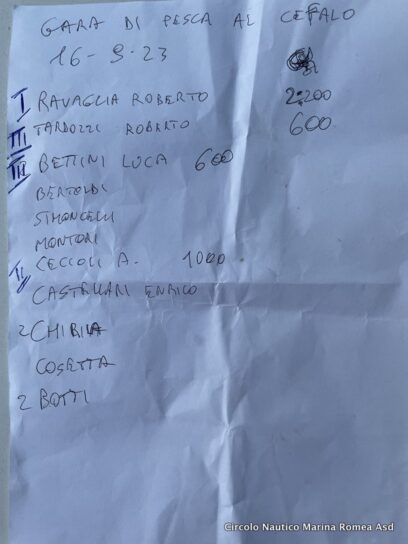 GARA DI PESCA AL CEFALO
16-9-23
I RAVAGLIA ROBERTO 2.200
III TARDOZZI ROBERTO 600
III BETTINI LUCA 600
BERTOLDI
SIMONCELLI
MONTORI
II CECCOLI A. 1000
CASTELLARI ENRICO
2 CHIRILA
COSETTA
2 BOTTI
Circolo Nautico Marina Romea Asd